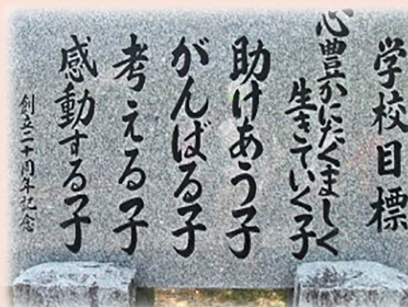 学校目標
心豊かにたくましく
生きていく子
助けあう子
がんばる子
考える子
感動する子
創立二十周年記念